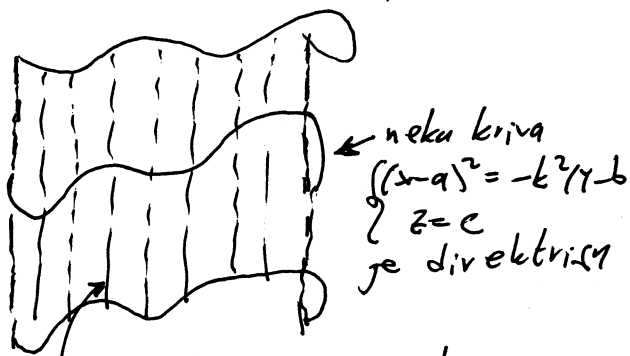 neka kriva
{(x-a)² = -k²(y-b
{ z=c
je direktrisa